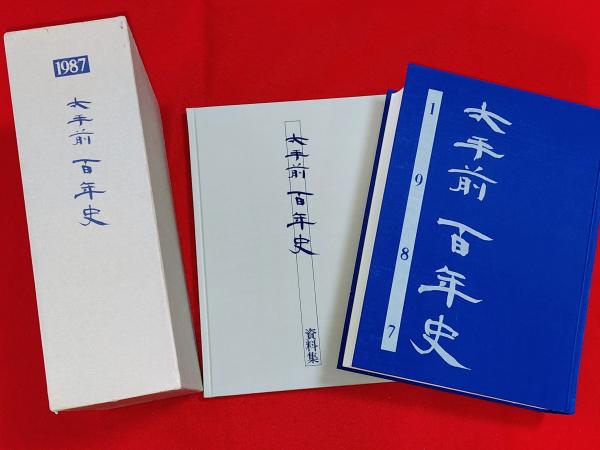 1987
大手前 百年史
大手前 百年史
資料集
1987
大手前 百年史